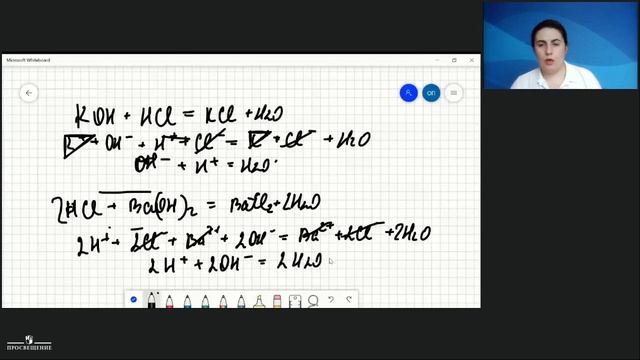 Microsoft Whiteboard
on
KOH + HCl = KCl + H₂O
K⁺ + OH⁻ + H⁺ + Cl⁻ = K⁺ + Cl⁻ + H₂O
OH⁻ + H⁺ = H₂O
2HCl + Ba(OH)₂ = BaCl₂ + 2H₂O
2H⁺ + 2Cl⁻ + Ba²⁺ + 2OH⁻ = Ba²⁺ + 2Cl⁻ + 2H₂O
2H⁺ + 2OH⁻ = 2H₂O
ПРОСВЕЩЕНИЕ